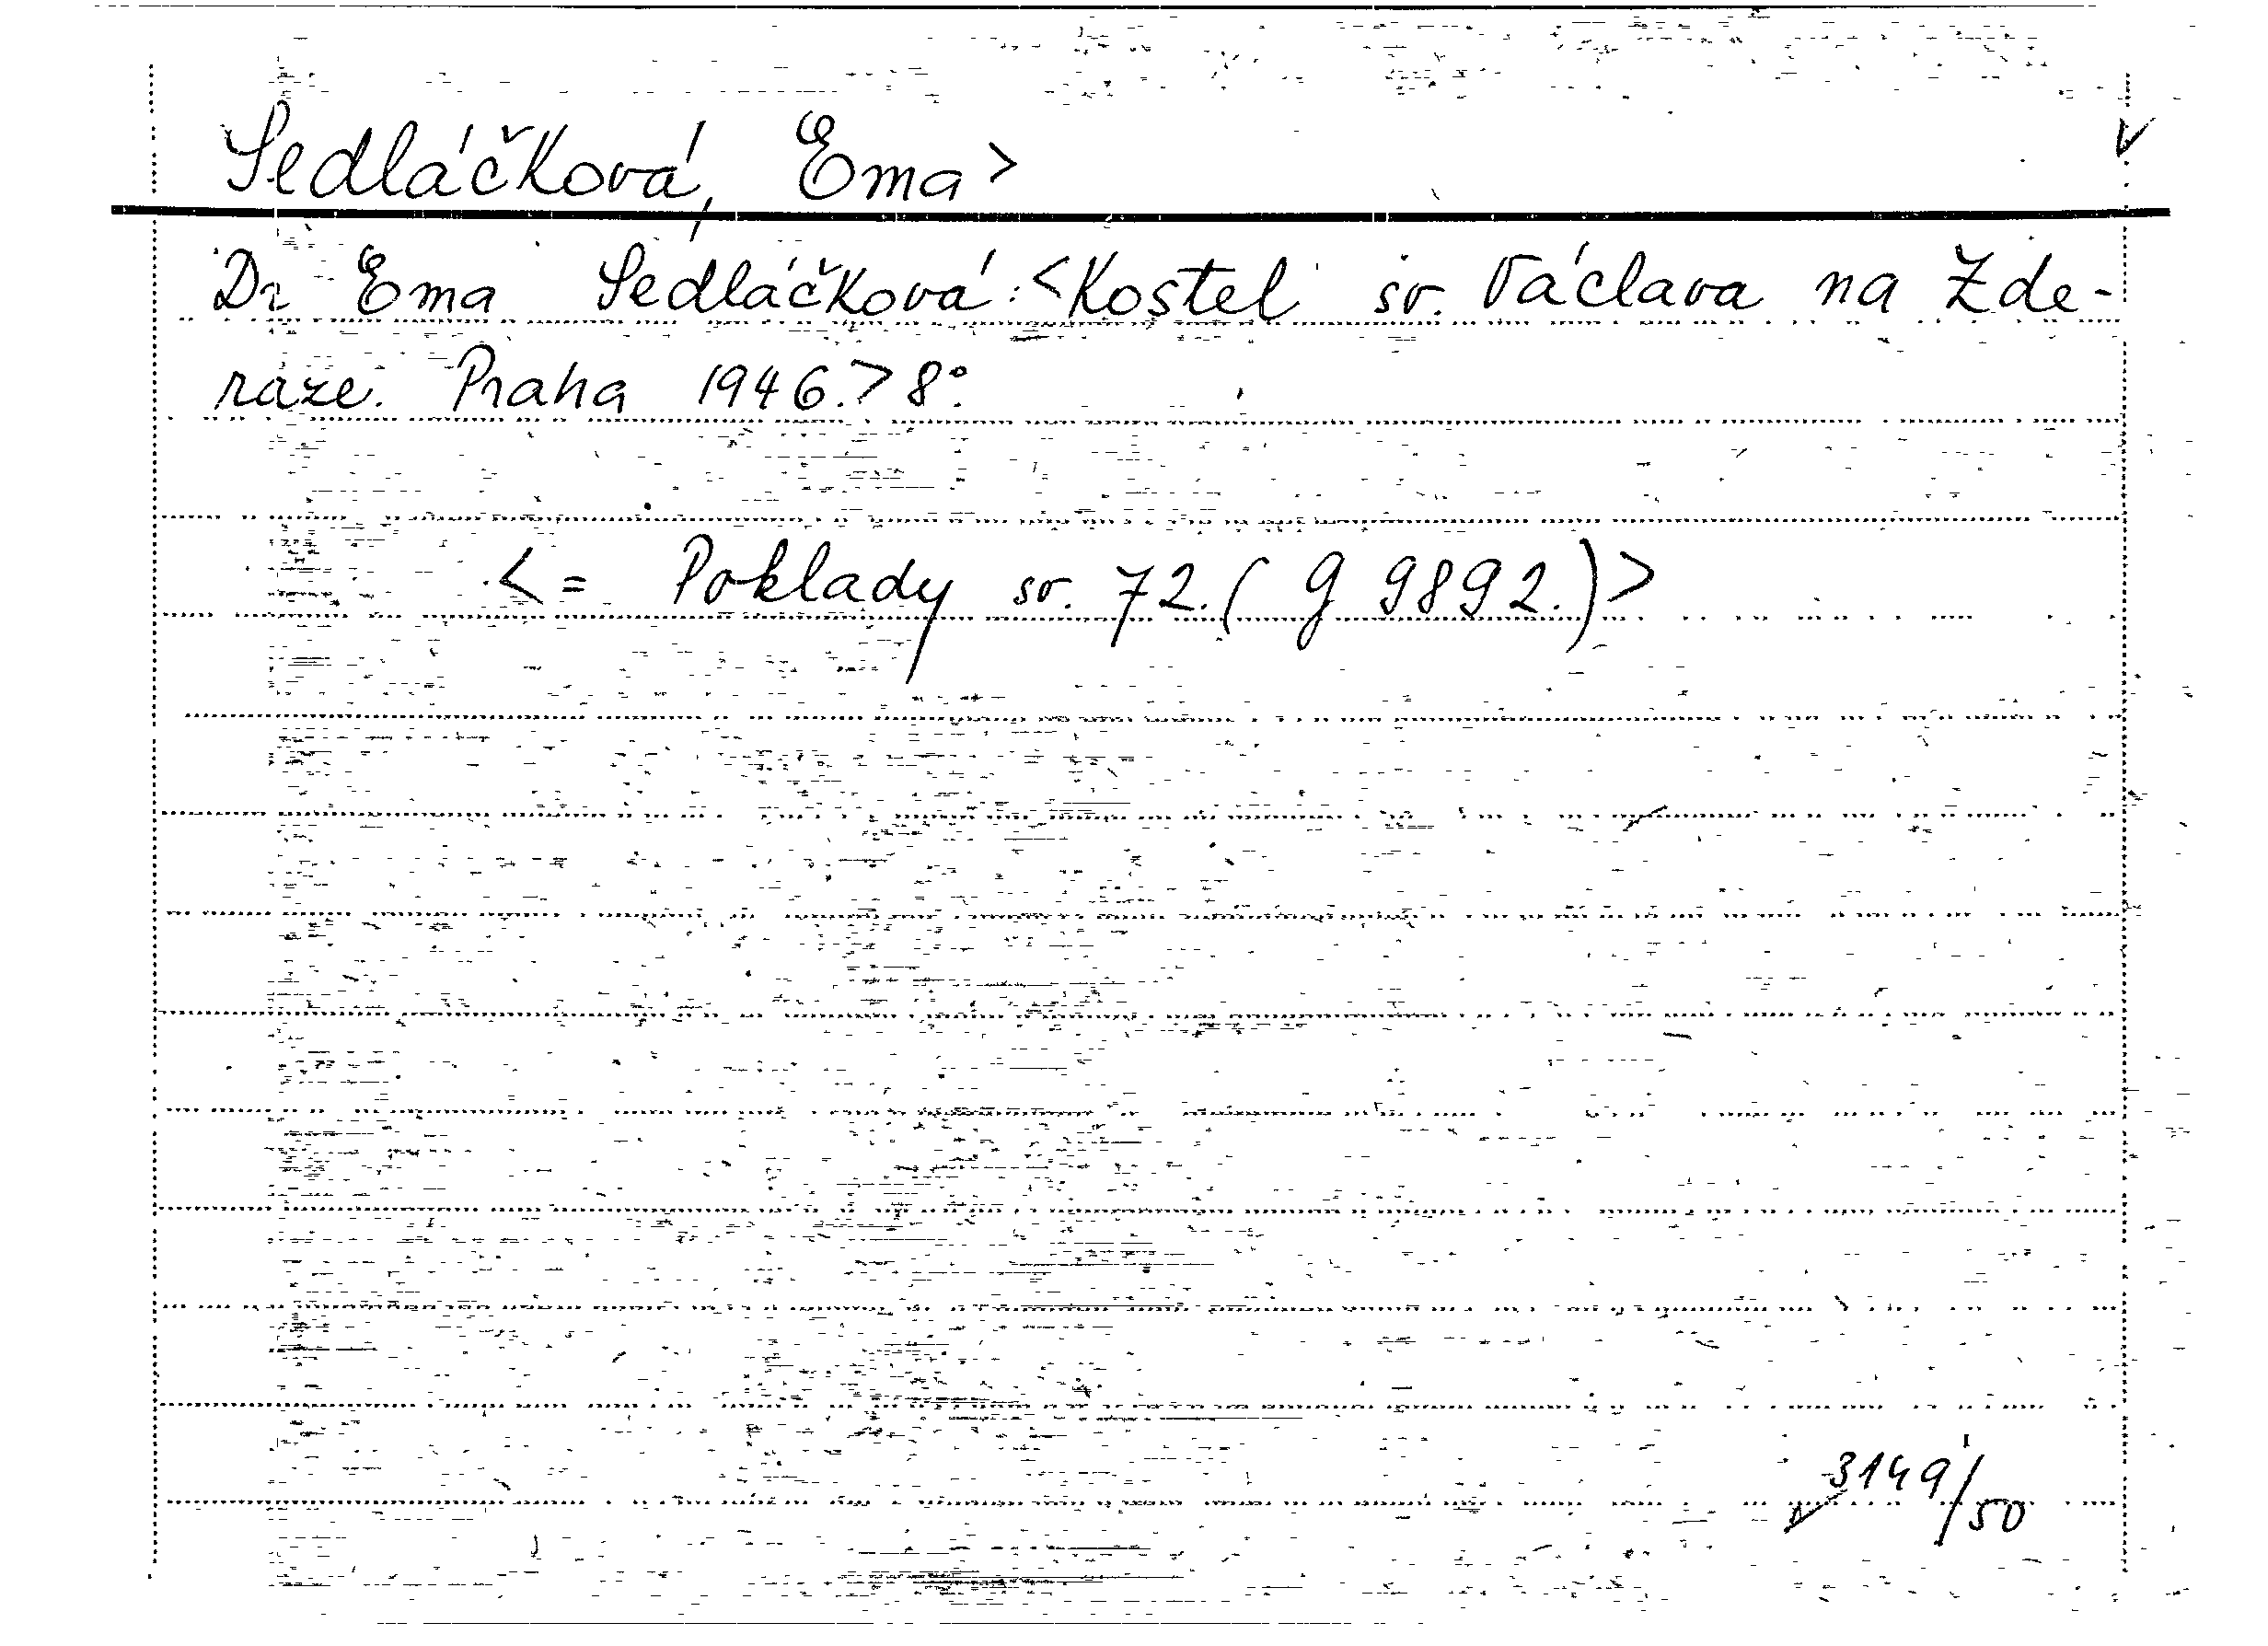 Sedláčková, Ema>
Dr Ema Sedláčková: <Kostel sv. Václava na Zde-
raze. Praha 1946.> 8°.
<= Poklady sv. 72. (g 9892.)>
3149/50